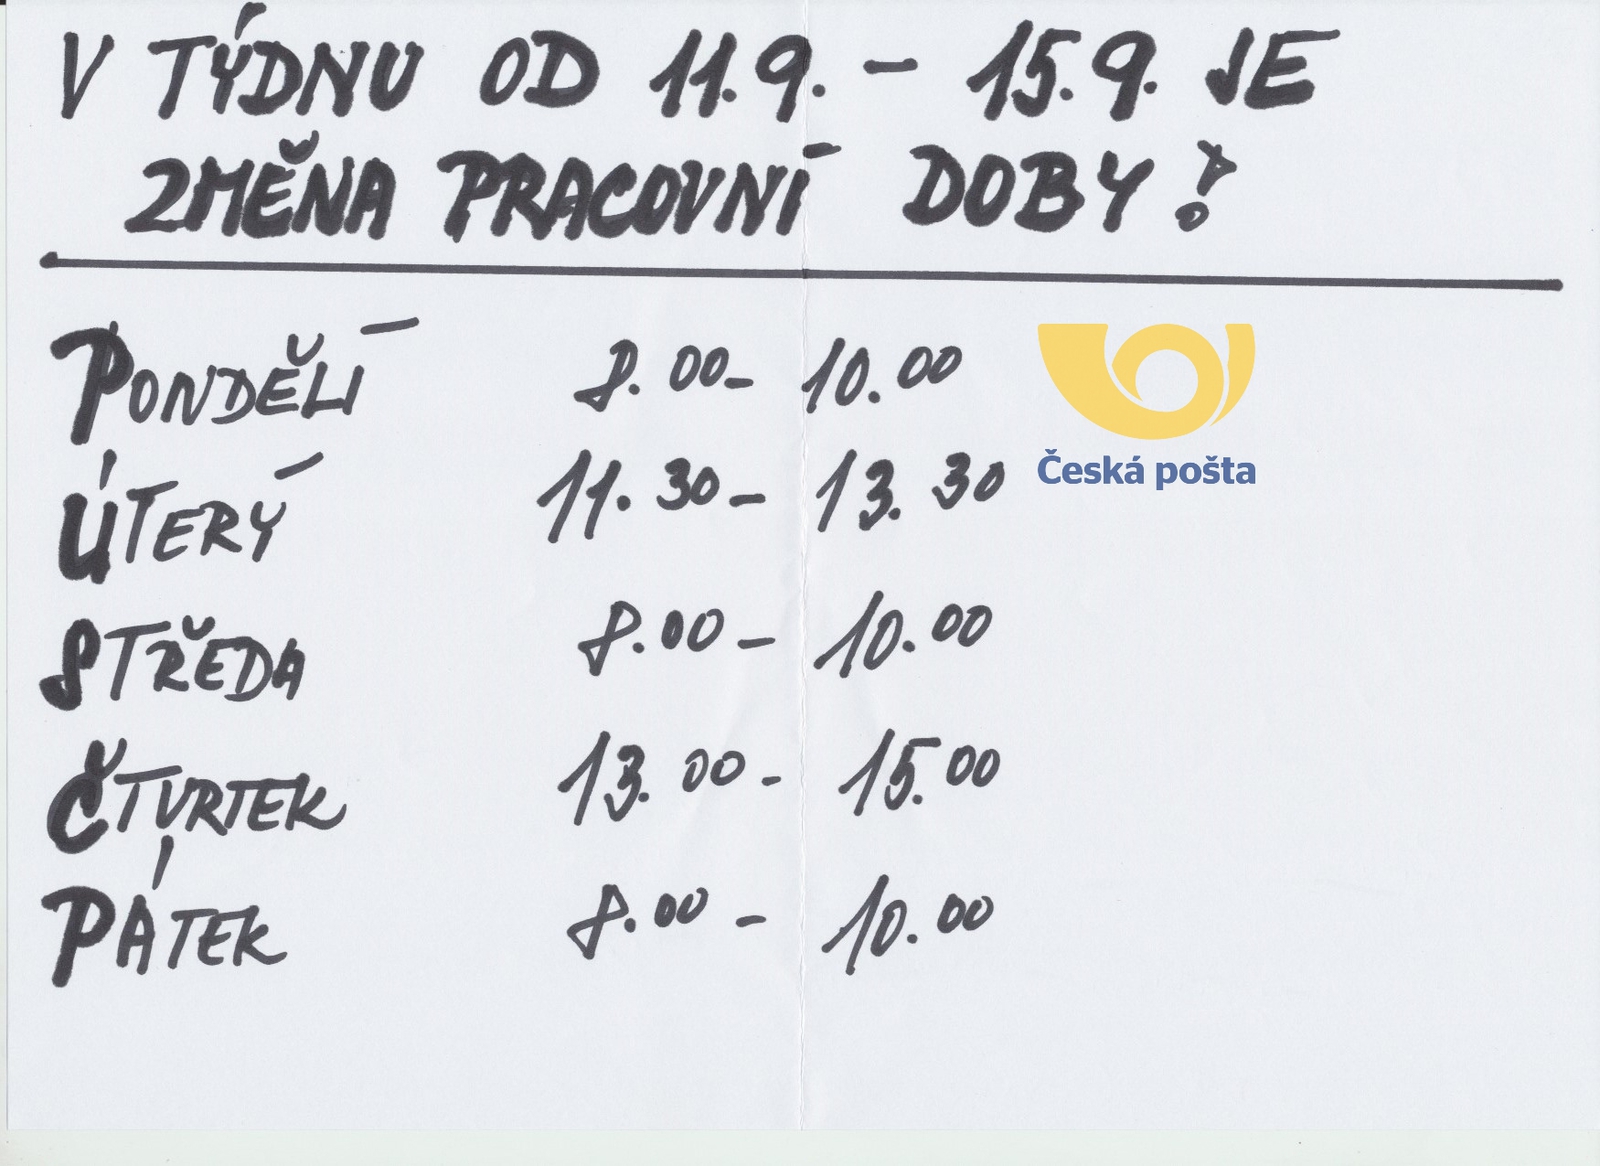 V TÝDNU OD 11.9. - 15.9. JE
ZMĚNA PRACOVNÍ DOBY!
PONDĚLÍ 8.00- 10.00
ÚTERÝ 11.30- 13.30
Česká pošta
STŘEDA 8.00- 10.00
ČTVRTEK 13.00- 15.00
PÁTEK 8.00- 10.00